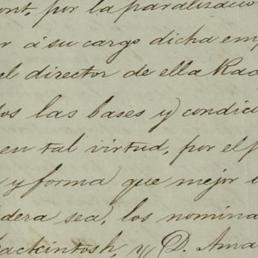 ont, por la paralizacio
r á su cargo dicha emp
el director de ella Rad
os las bases y condici
en tal virtud, por el p
y forma que mejor
dera sea, los nomina
ackintosh, y D. Ama